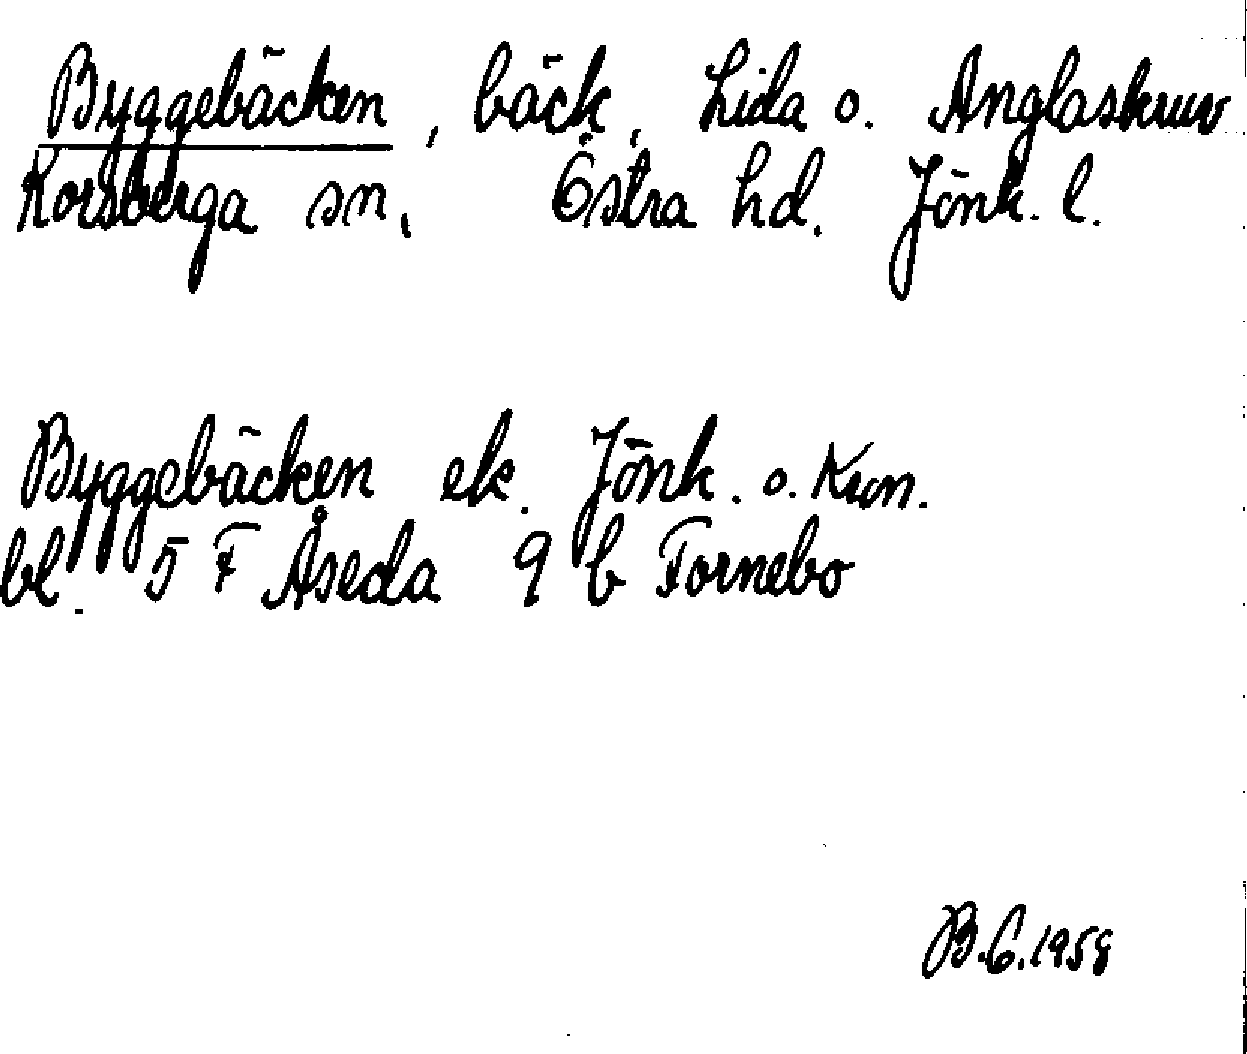 Byggebäcken, bäck, Lida o. Änglaskruv
Korsberga sn. Östra hd. Jönk. l.
Byggebäcken ek. Jönk. o. Kron.
bl. 5 F Åseda 9 b Fornebo
B.G.1958